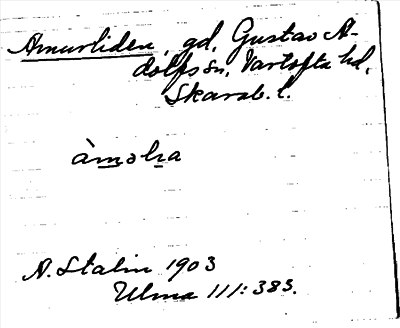 Amurliden, gd, Gustav A-
dolfs sn, Vartofta hd,
Skarab. l.
àməlna
A. Stalin 1903
Ulma 111:383.